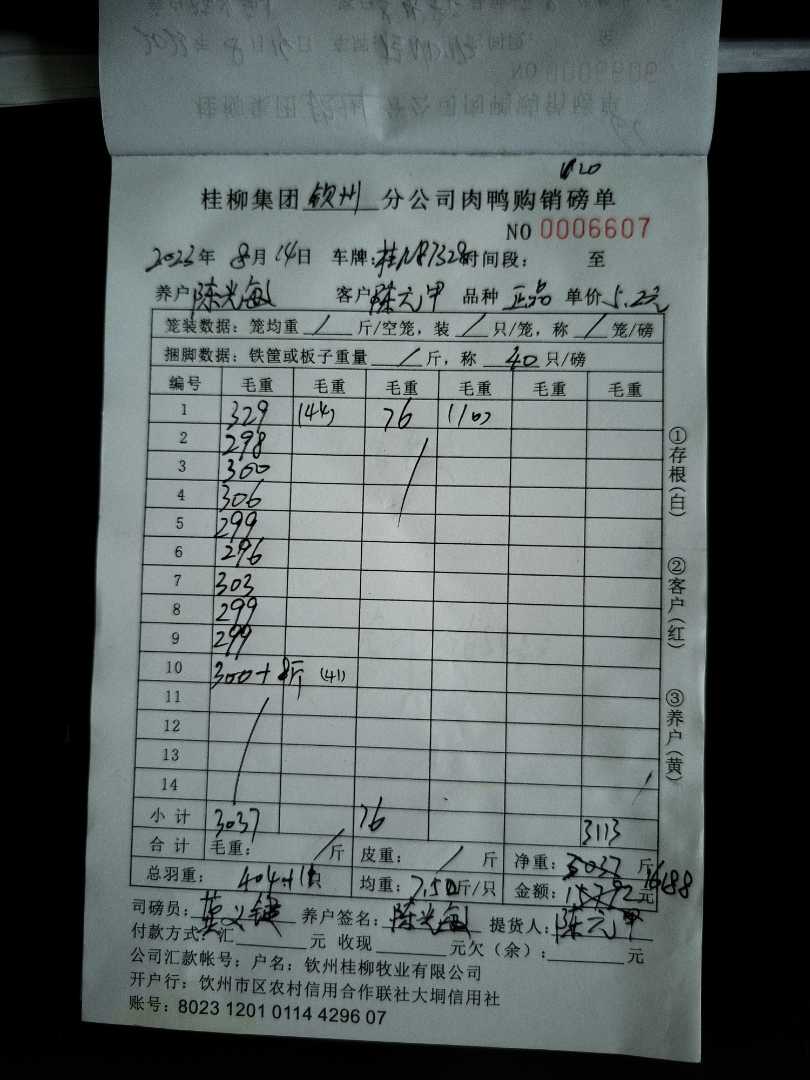 桂柳集团 钦州 分公司肉鸭购销磅单
NO 0006607
2023年 8月 14日 车牌:桂N87328 时间段: 至
养户 陈光敏 客户 陈六甲 品种 正品 单价 5.2元
笼装数据:笼均重 / 斤/空笼,装 / 只/笼,称 / 笼/磅
捆脚数据:铁筐或板子重量 / 斤,称 40 只/磅
编号 毛重 毛重 毛重 毛重 毛重 毛重
1 329 (44) 76 (10)
2 298
3 300
4 306
5 299
6 296
7 303
8 299
9 299
10 300+8斤 (41)
11
12
13
14
小计 3037 76 3113
合计 毛重: / 斤 皮重: / 斤 净重: 3037 斤
总羽重: 404+1只 均重: 7.50斤/只 金额: 15792元 16188
司磅员: 养户签名: 陈光敏 提货人: 陈六甲
付款方式:汇 元 收现 元欠(余): 元
公司汇款帐号:户名:钦州桂柳牧业有限公司
开户行:钦州市区农村信用合作联社大垌信用社
账号:8023 1201 0114 4296 07
①存根(白)
②客户(红)
③养户(黄)